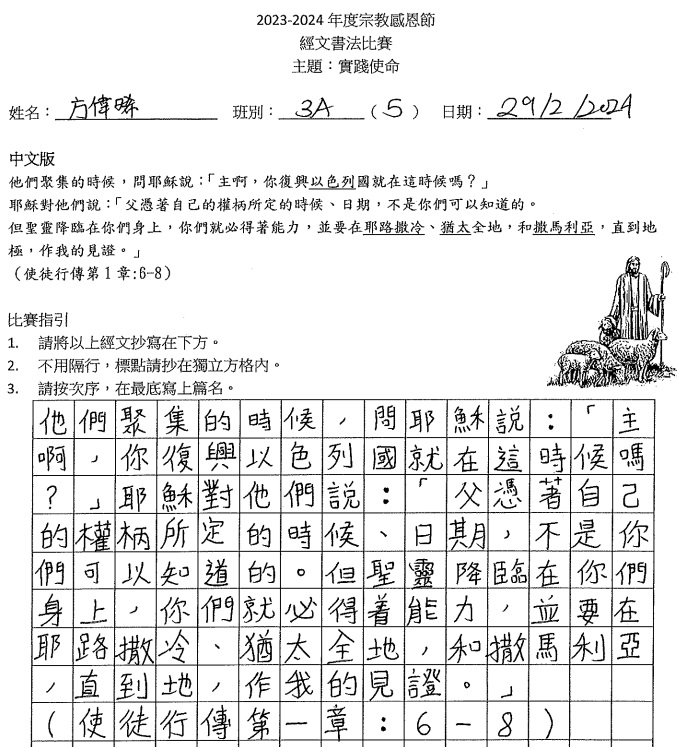 2023-2024 年度宗教感恩節
經文書法比賽
主題：實踐使命
姓名：方偉晞 班別：3A（5） 日期：29/2/2024
中文版
他們聚集的時候，問耶穌說：「主啊，你復興以色列國就在這時候嗎？」
耶穌對他們說：「父憑著自己的權柄所定的時候、日期，不是你們可以知道的。
但聖靈降臨在你們身上，你們就必得著能力，並要在耶路撒冷、猶太全地，和撒馬利亞，直到地
極，作我的見證。」
（使徒行傳第 1 章:6-8）
比賽指引
1. 請將以上經文抄寫在下方。
2. 不用隔行，標點請抄在獨立方格內。
3. 請按次序，在最底寫上篇名。
他們聚集的時候，問耶穌説：「主
啊，你復興以色列國就在這時候嗎
？」耶穌對他們説：「父憑著自己
的權柄所定的時候、日期，不是你
們可以知道的。但聖靈降臨在你們
身上，你們就必得着能力，並要在
耶路撒冷、猶太全地，和撒馬利亞
，直到地，作我的見證。」
（使徒行傳第一章：6-8）